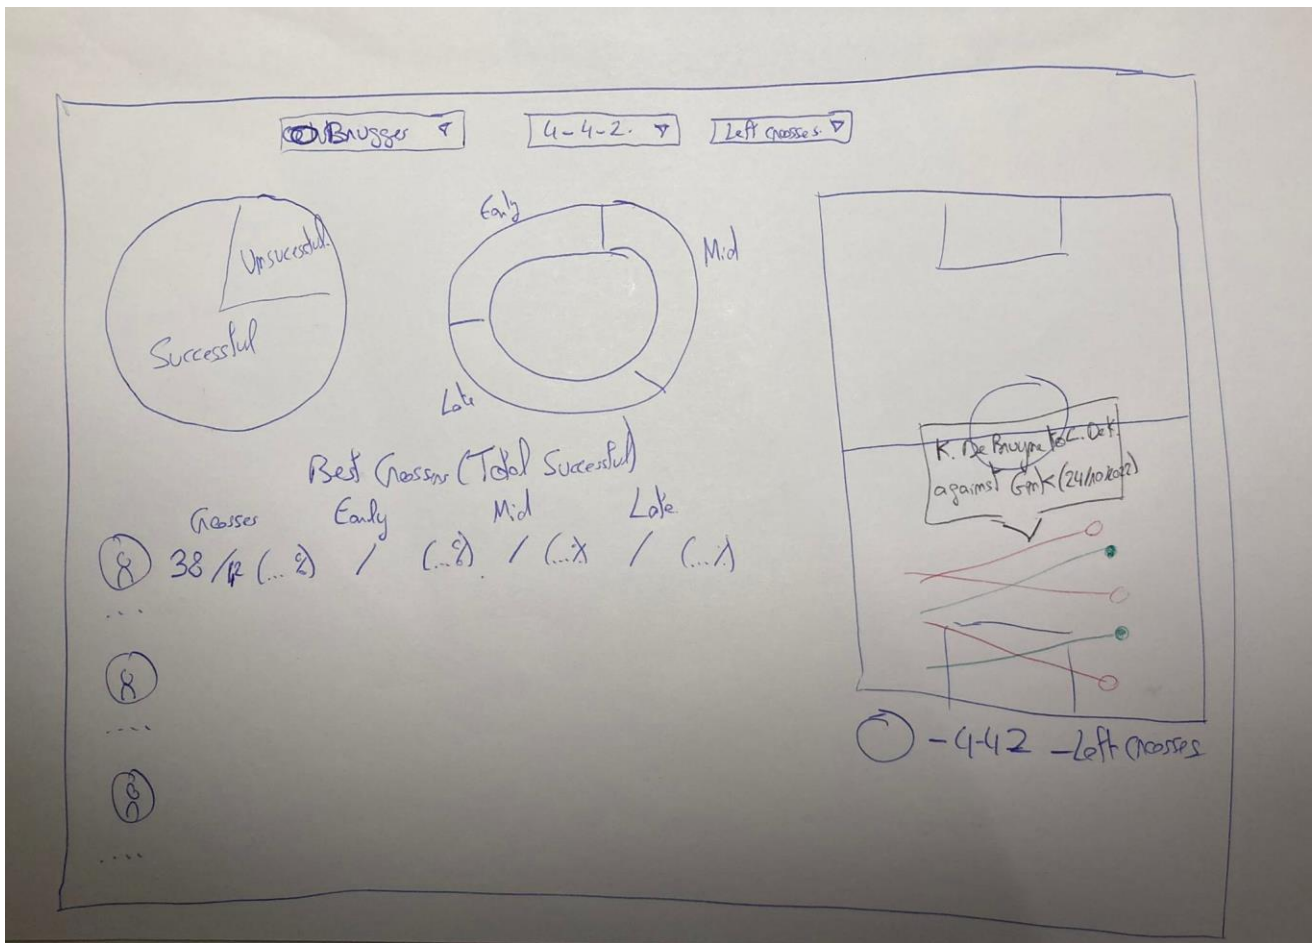 Brugger
4-4-2.
Left Crosses.
Unsucessful.
Successful
Early
Mid
Late
Best Crossers (Total Successful)
Crosses Early Mid Late
38/42 (... %) / (...%) / (...%) / (...%)
....
....
....
K. De Bruyne to C. Dek.
against Genk (24/10/2022)
-4-42 -Left Crosses